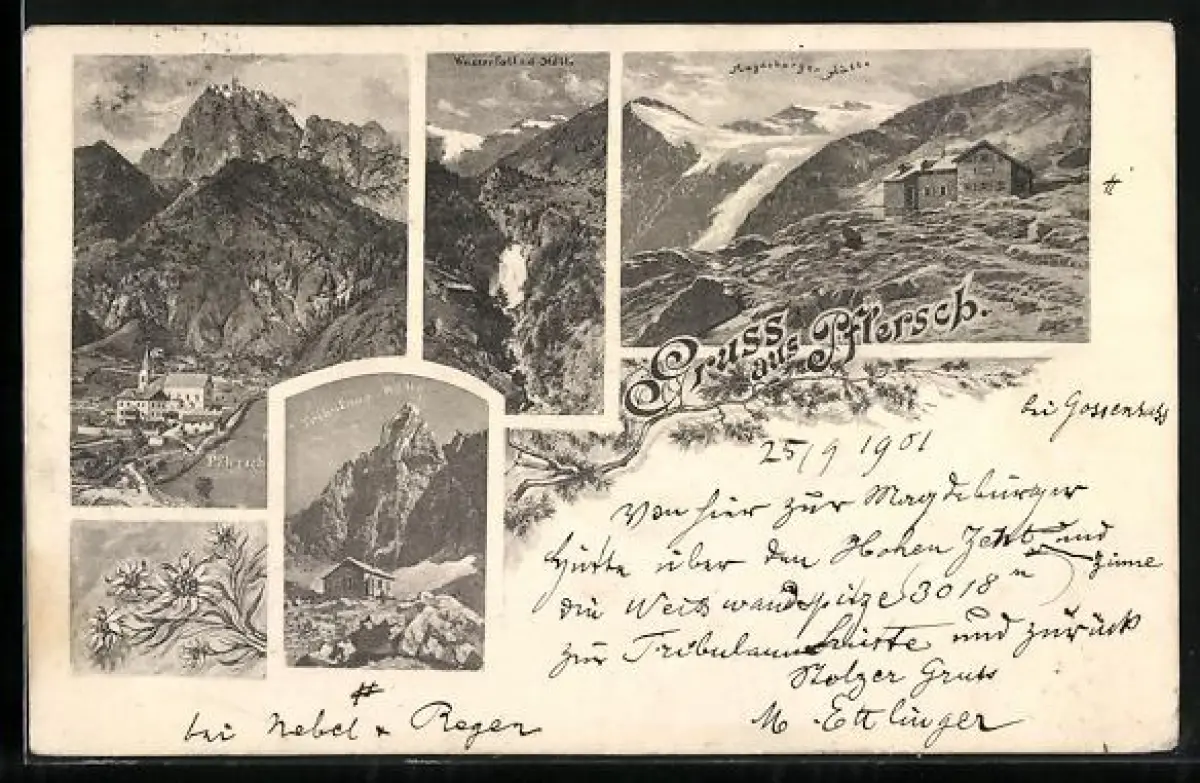 Wasserfall i.d. Höll.
Magdeburger Hütte
Gruss aus Pflersch.
Pflersch
Tribulaun Hütte
#
bei Gossensaß
25/9 1901
Von hier zur Magdeburger
Hütte über den Hohen Zahn und
Zinne
die Weißwandspitze (3018 m)
zur Tribulaunhütte und zurück
Stolzer Gruss
M. Ettlinger
#
bei Nebel & Regen